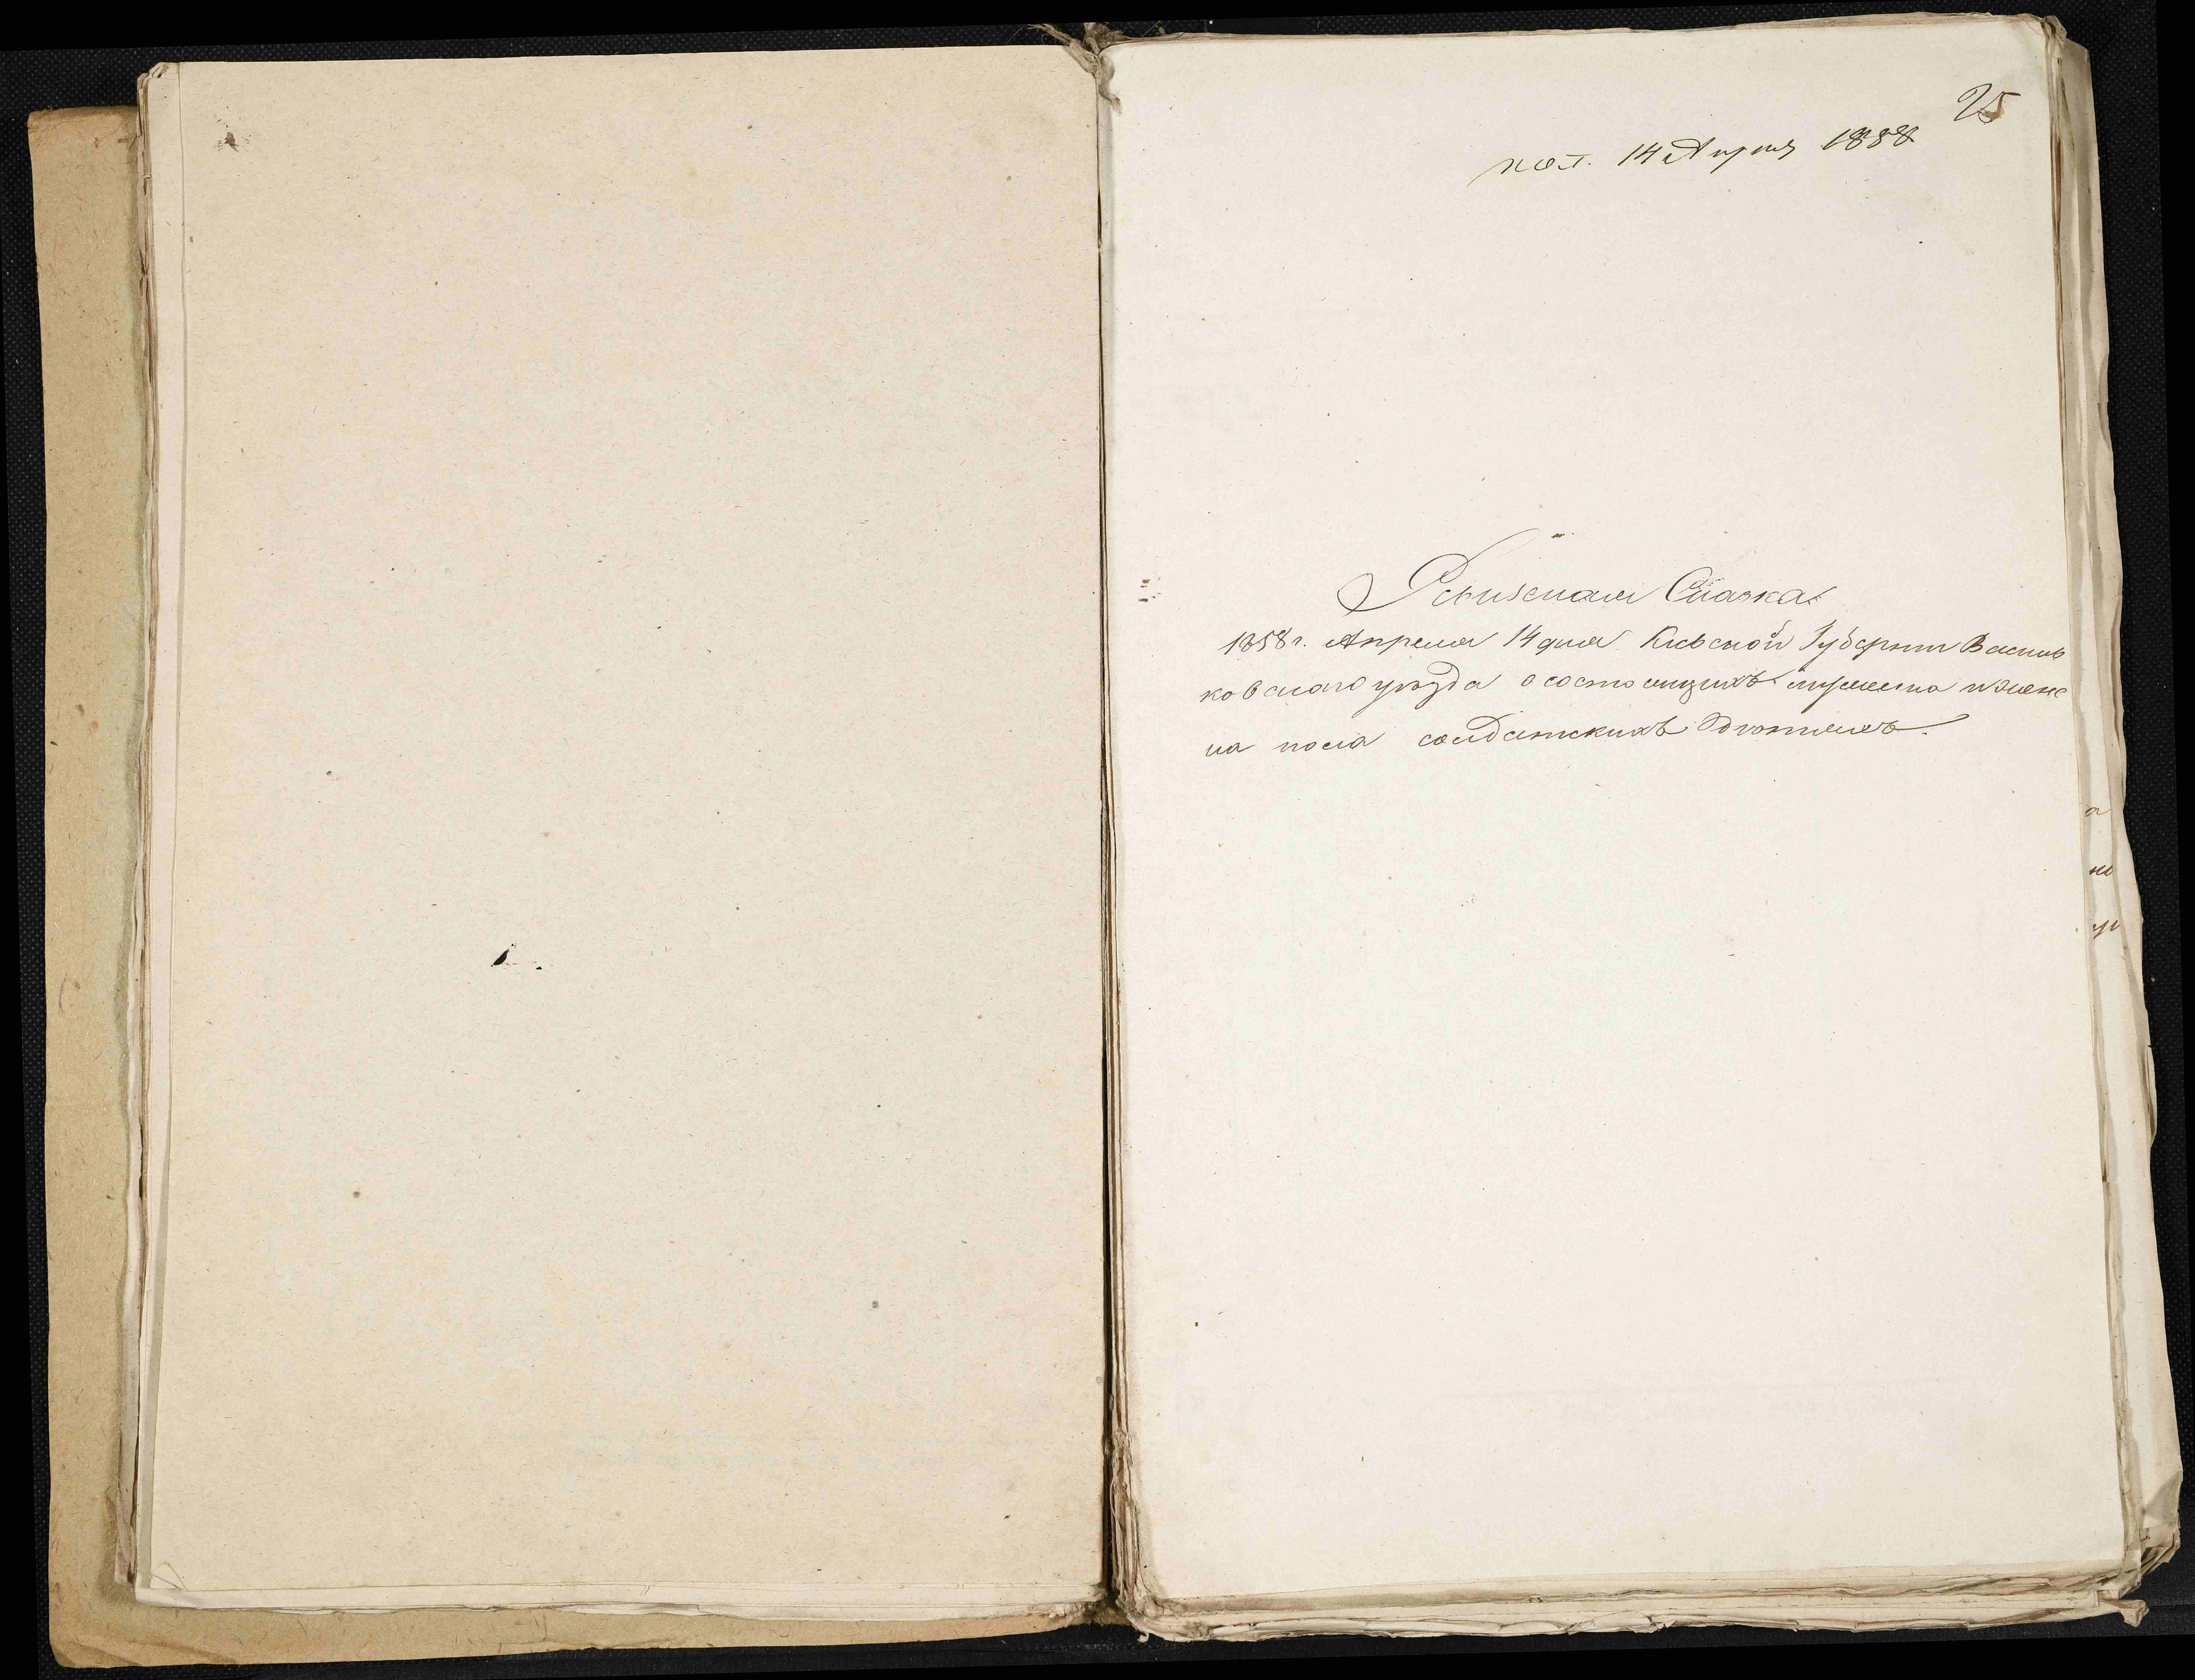 25
пол. 14 Апреля 1858
Ревизская Сказка
1858 г. Апреля 14 дня Киевской Губернии Василь
ковскаго уезда о состоящихъ мужеска и женс
ка пола солдатскихъ